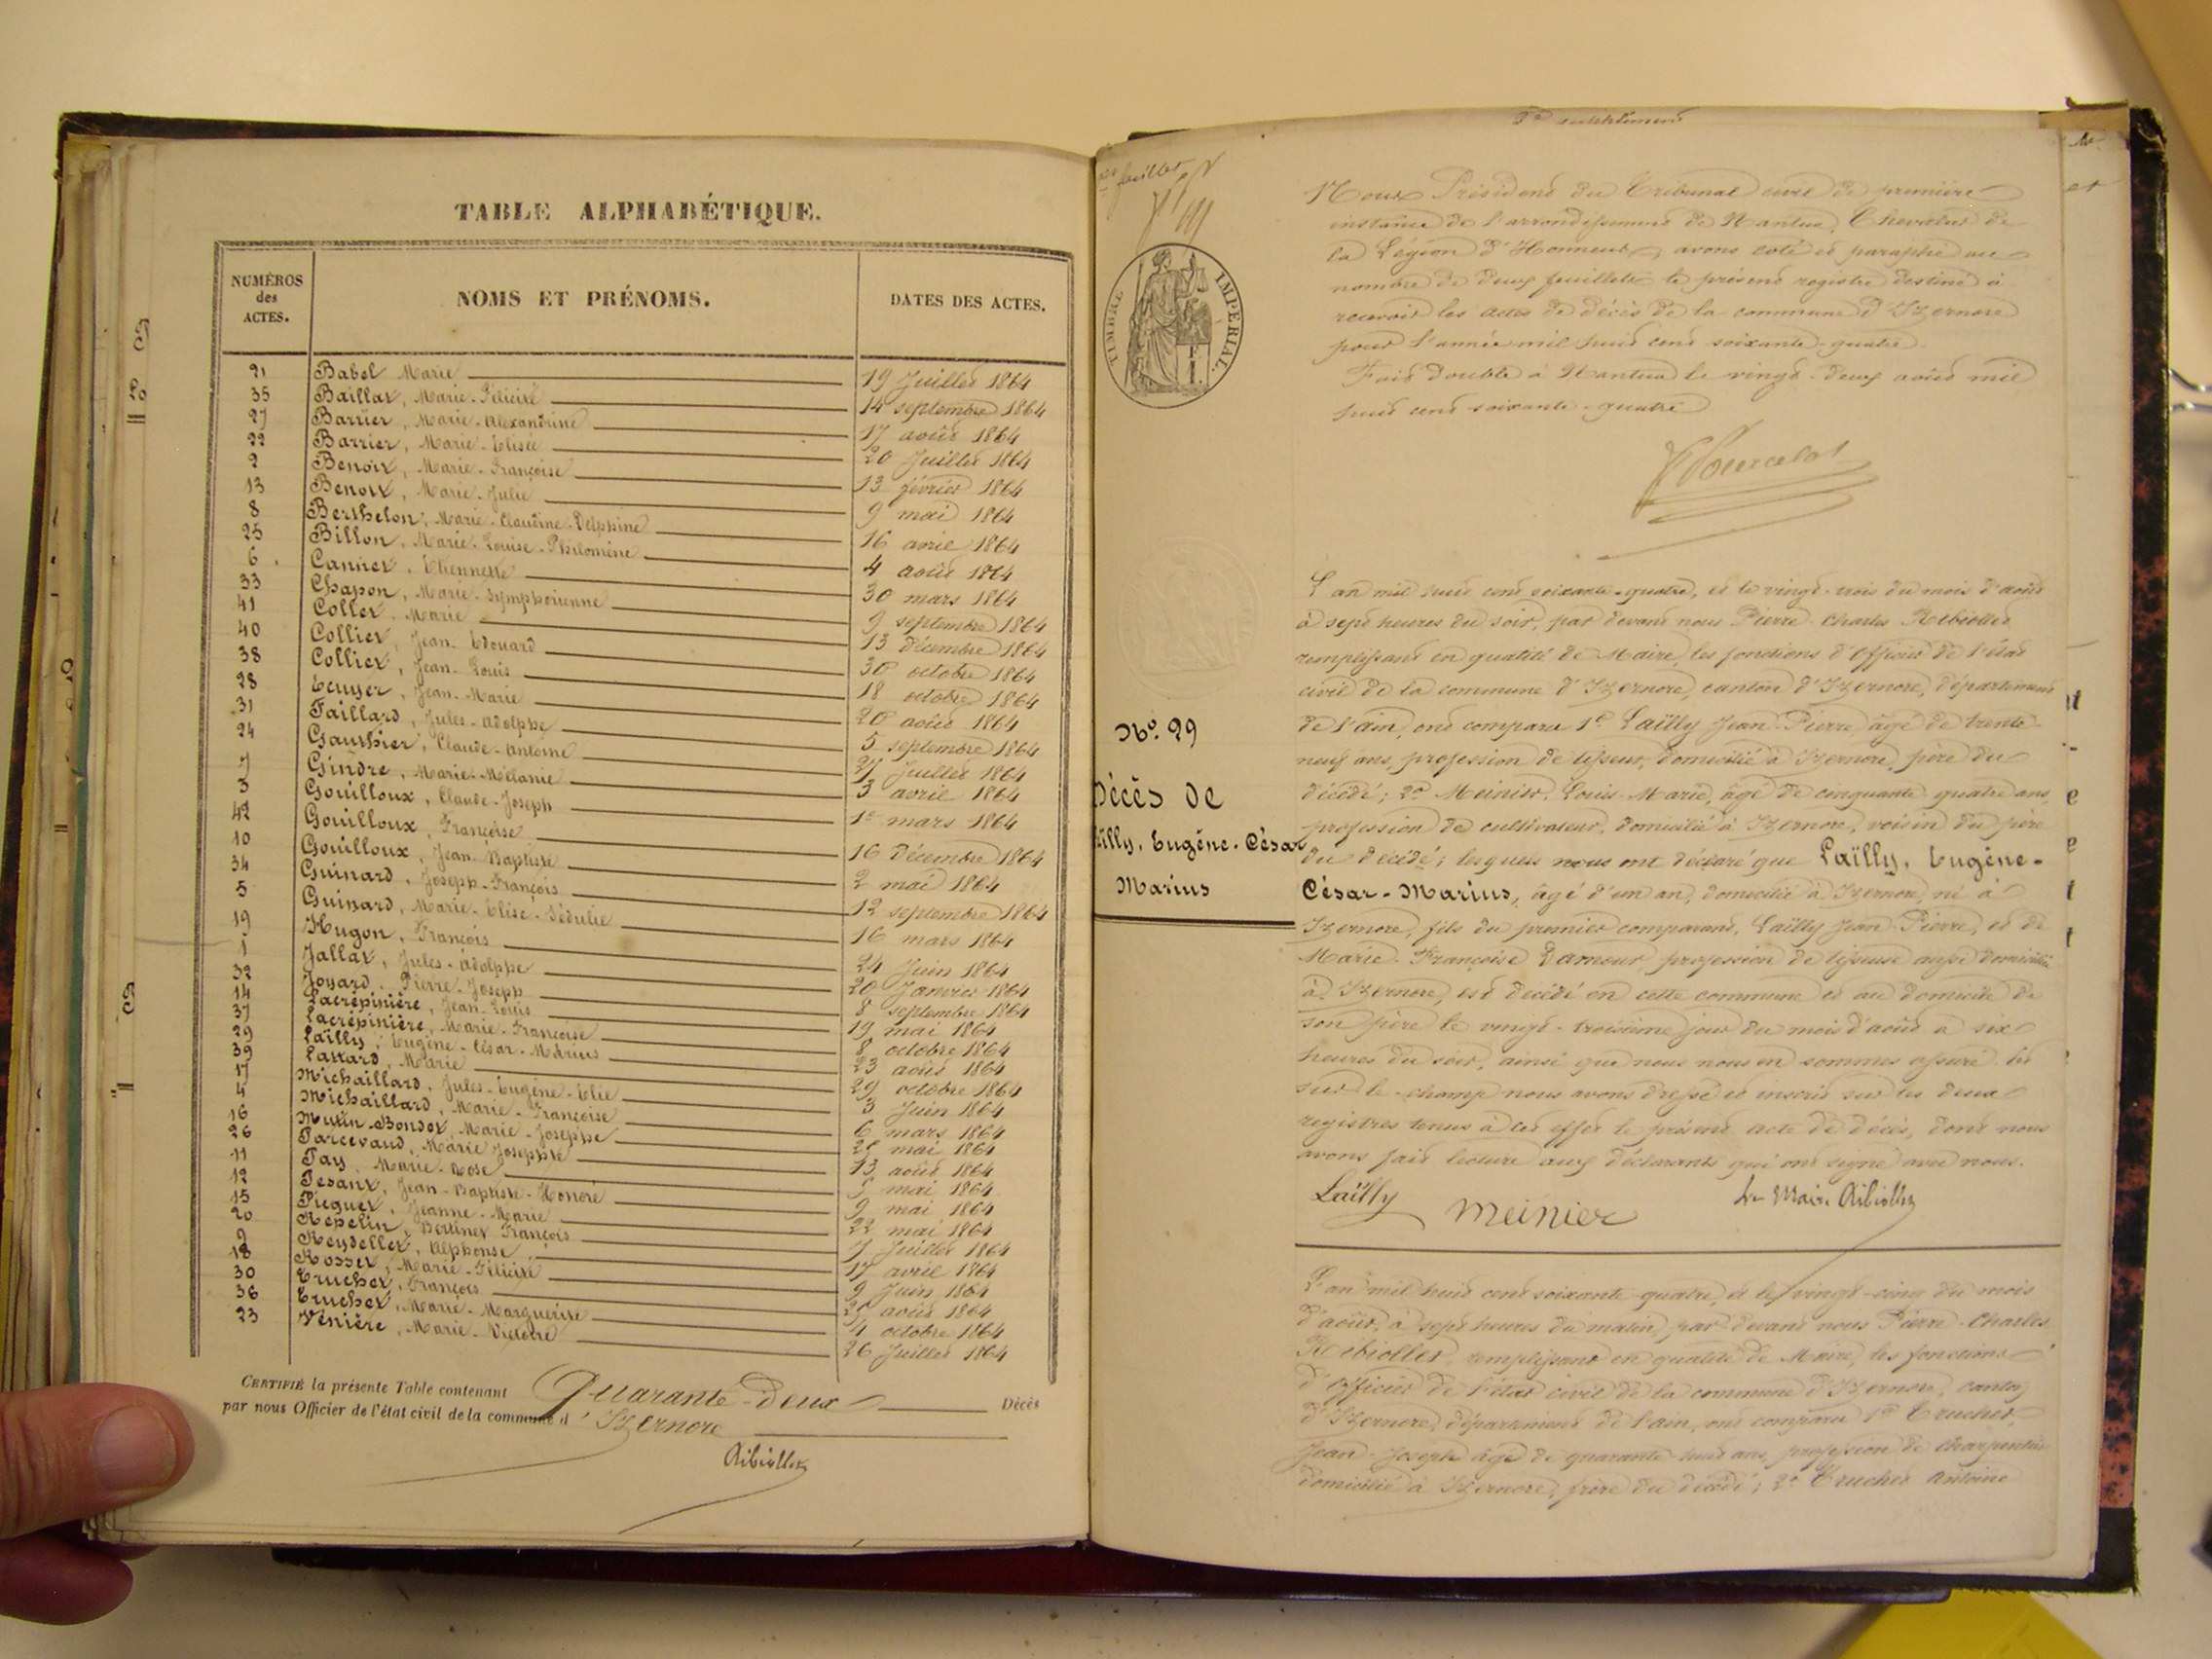 TABLE ALPHABÉTIQUE.
NUMÉROS des ACTES.
NOMS ET PRÉNOMS.
DATES DES ACTES.
21 Babel Marie 19 Juillet 1864
35 Baillat, Marie-Félicité 14 septembre 1864
27 Barrier, Marie-Alexandrine 17 août 1864
22 Barrier, Marie-Elisée 20 Juillet 1864
2 Benoit, Marie-Françoise 13 février 1864
13 Benoit, Marie-Julie 9 mai 1864
8 Berthelon, Marie-Claudine-Delphine 16 avril 1864
25 Billon, Marie-Louise-Philomène 4 août 1864
6 Cannet, Etiennette 30 mars 1864
33 Chapon, Marie-Symphorienne 9 septembre 1864
41 Collet, Marie 13 décembre 1864
40 Colliex, Jean-Edouard 30 octobre 1864
38 Colliex, Jean-Louis 18 octobre 1864
28 Ecuyer, Jean-Marie 20 août 1864
31 Faillard, Jules-Adolphe 5 septembre 1864
24 Gauthier, Claude-Antoine 27 Juillet 1864
7 Gindre, Marie-Mélanie 3 avril 1864
3 Gouilloux, Claude-Joseph 1er mars 1864
42 Gouilloux, Françoise 16 Décembre 1864
10 Gouilloux, Jean-Baptiste 2 mai 1864
34 Guinard, Joseph-François 12 septembre 1864
5 Guinard, Marie-Elise-Sédulie 16 mars 1864
19 Hugon, François 24 Juin 1864
1 Jallat, Jules-Adolphe 20 Janvier 1864
32 Joyard, Pierre-Joseph 8 septembre 1864
14 Lacrépinière, Jean-Louis 19 mai 1864
37 Lacrépinière, Marie-Françoise 8 octobre 1864
29 Laïlly, Eugène-César-Marius 23 août 1864
39 Lattard, Marie 29 octobre 1864
17 Michaillard, Jules-Eugène-Elie 3 Juin 1864
4 Michaillard, Marie-Françoise 6 mars 1864
16 Mutin-Bondet, Marie-Josephte mai 1864
26 Parcevaud, Marie Josephte 13 août 1864
11 Pay, Marie-Rose mai 1864
12 Pesant, Jean-Baptiste-Honoré 9 mai 1864
15 Piquet, Jeanne-Marie 22 mai 1864
20 Repelin, Bertinet François 7 Juillet 1864
9 Reydellet, Alphonse 17 avril 1864
18 Rosset, Marie-Félicité 9 Juin 1864
30 Truchet, François 25 août 1864
36 Truchet, Marie-Marguerite 4 octobre 1864
23 Vénière, Marie-Victoire 26 Juillet 1864
CERTIFIÉ la présente Table contenant Quarante-Deux Décès
par nous Officier de l'état civil de la commune d'Izernore
Ribiollet
1er supplément
1er feuillet
TIMBRE IMPÉRIAL.
Nous Président du Tribunal civil de première
instance de l'arrondissement de Nantua, Chevalier de
la Légion d'Honneur, avons coté et paraphé au
nombre de deux feuillets le présent registre destiné à
recevoir les actes de décès de la commune d'Izernore
pour l'année mil huit cent soixante-quatre.
Fait double à Nantua le vingt-deux août mil
huit cent soixante-quatre
No. 29
Décès de
ailly, Eugène-César
Marius
L'an mil huit cent soixante-quatre, et le vingt-trois du mois d'août
à sept heures du soir, par devant nous Pierre-Charles Ribiollet
remplissant en qualité de Maire, les fonctions d'officier de l'état
civil de la commune d'Izernore, canton d'Izernore, département
de l'ain, ont comparu 1º Laïlly Jean-Pierre, âgé de trente-
neuf ans, profession de tisseur, domicilié à Izernore, père du
décédé; 2º Meinier, Louis-Marie, âgé de cinquante quatre ans,
profession de cultivateur, domicilié à Izernore, voisin du père
du décédé; lesquels nous ont déclaré que Laïlly, Eugène-
César-Marius, âgé d'un an, domicilié à Izernore, né à
Izernore, fils du premier comparant, Laïlly Jean-Pierre, et de
Marie-Françoise Damour, profession de tisseuse aussi domiciliée
à Izernore, est décédé en cette commune et au domicile de
son père le vingt-troisième jour du mois d'août à six
heures du soir, ainsi que nous nous en sommes assuré. Et
sur-le-champ nous avons dressé et inscrit sur les deux
registres tenus à cet effet le présent acte de décès, dont nous
avons fait lecture aux déclarants qui ont signé avec nous.
Laïlly Meinier Le Maire Ribiollet
L'an mil huit cent soixante-quatre, et le vingt-cinq du mois
d'août, à sept heures du matin, par devant nous Pierre-Charles
Ribiollet, remplissant en qualité de Maire, les fonctions
d'officier de l'état civil de la commune d'Izernore, canton
d'Izernore, département de l'ain, ont comparu 1º Truchet,
Jean-Joseph âgé de quarante huit ans, profession de charpentier
domicilié à Izernore, frère du décédé; 2º Truchet Antoine